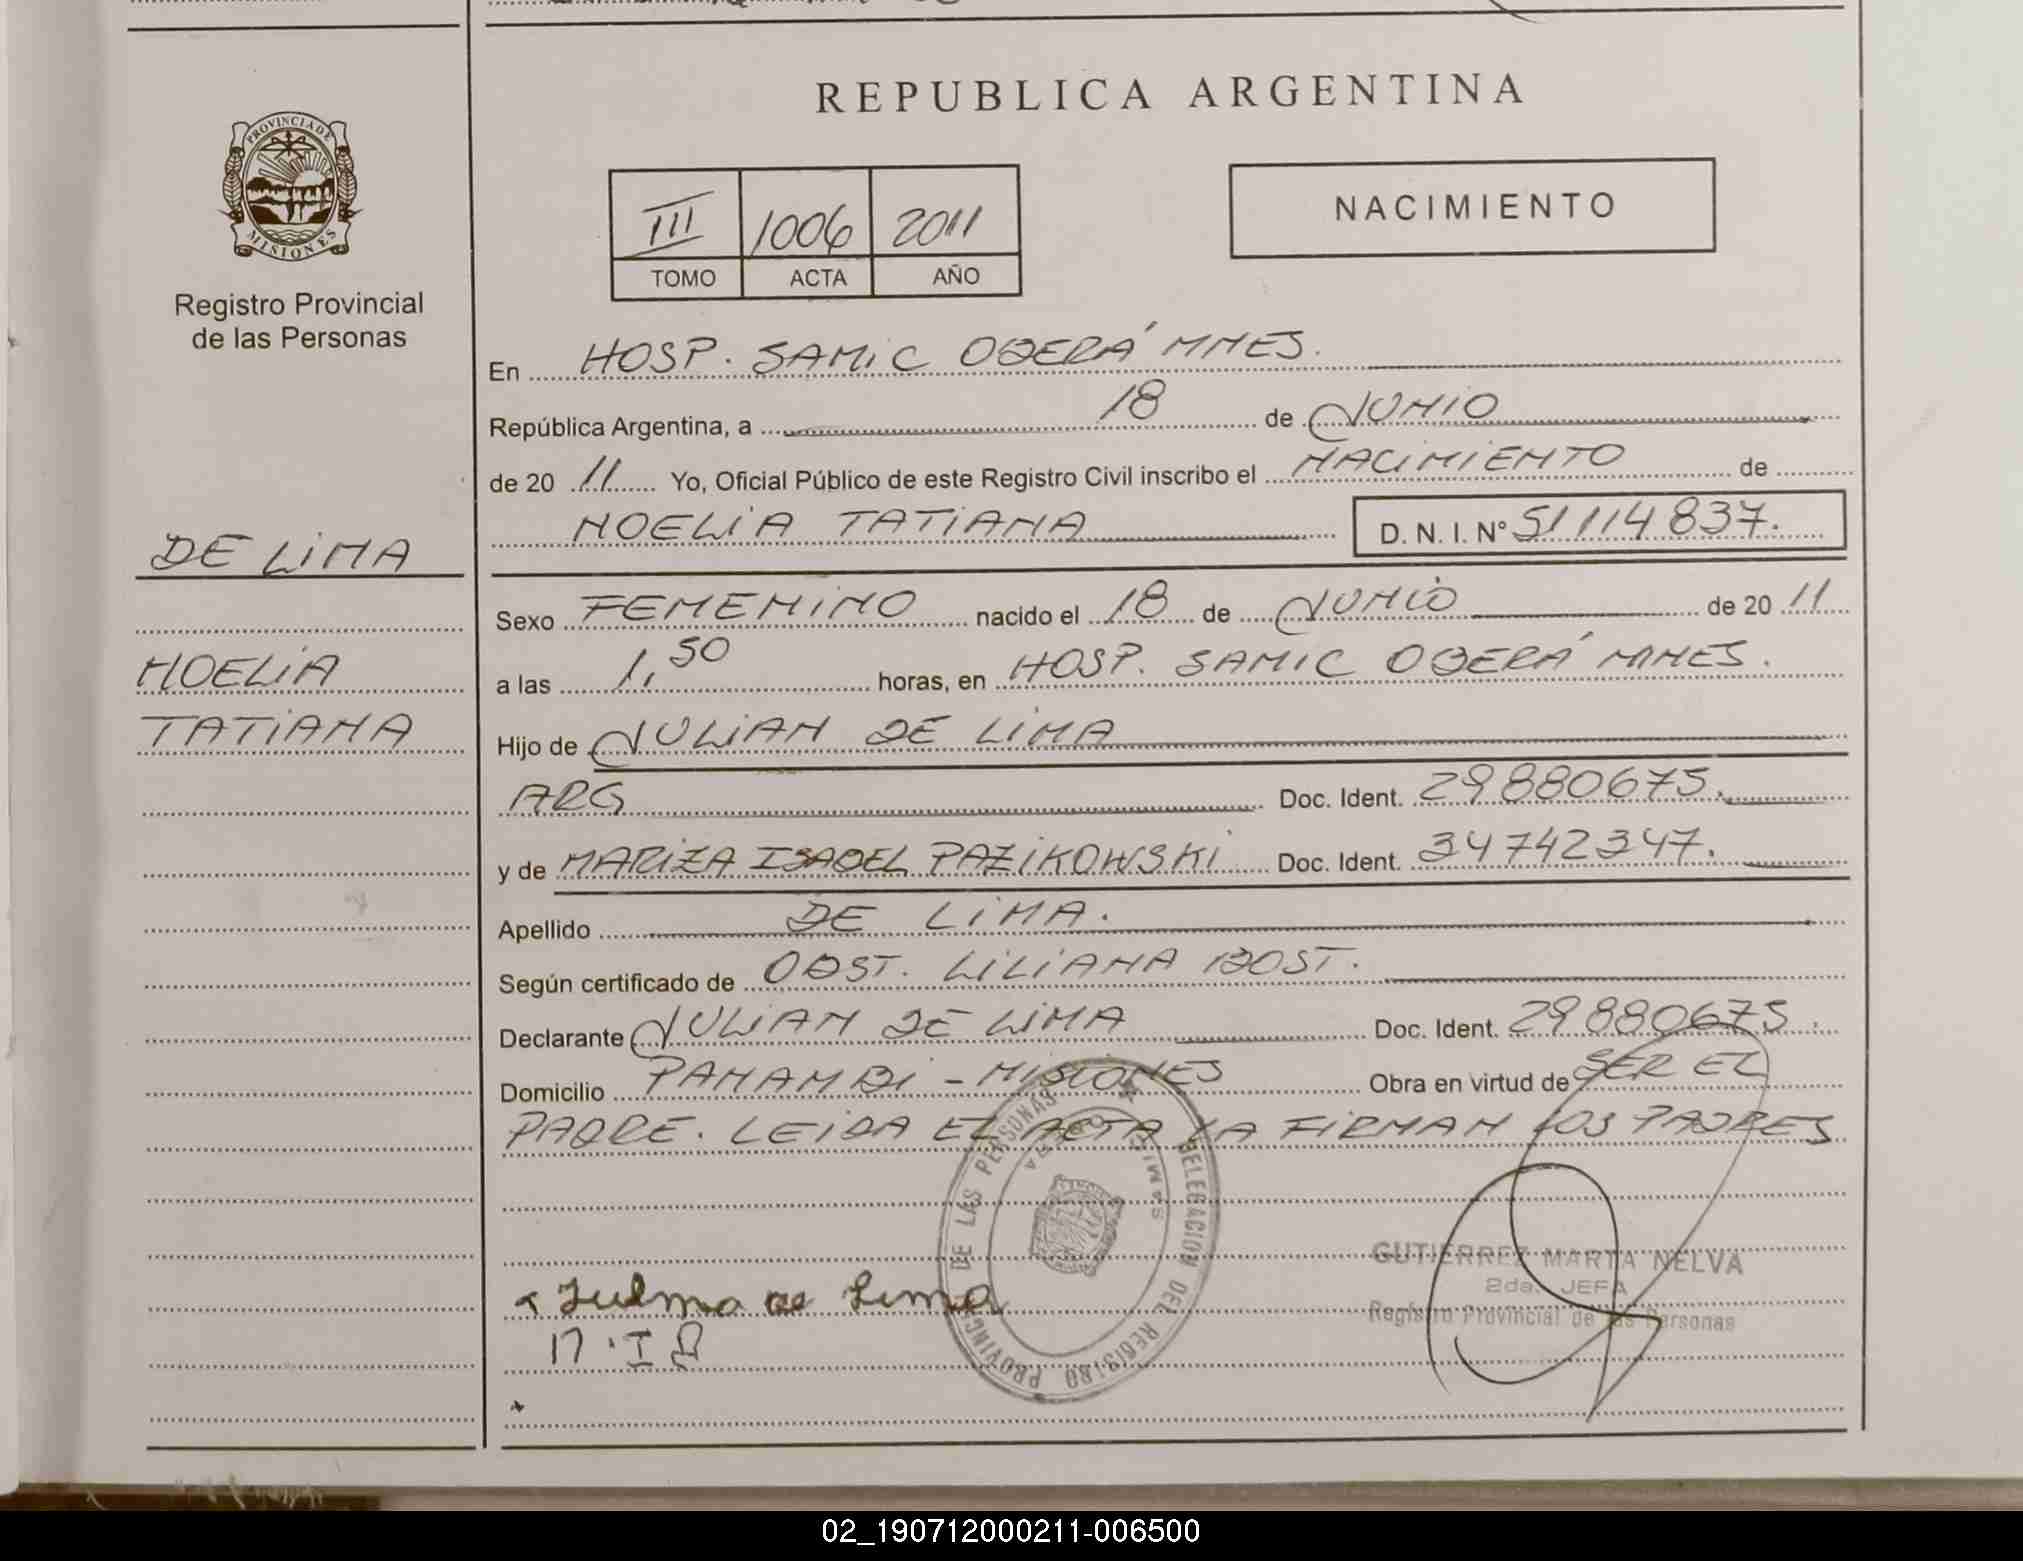 PROVINCIA DE
MISIONES
Registro Provincial
de las Personas
DE LIMA
NOELIA
TATIANA
REPUBLICA ARGENTINA
III 1006 2011
TOMO ACTA AÑO
NACIMIENTO
En HOSP. SAMIC OBERÁ MNES.
República Argentina, a 18 de JUNIO
de 20 11 Yo, Oficial Público de este Registro Civil inscribo el NACIMIENTO de
NOELIA TATIANA D. N. I. N° 51114837.
Sexo FEMENINO nacido el 18 de JUNIO de 20 11
a las 1,50 horas, en HOSP. SAMIC OBERÁ MNES.
Hijo de JULIAN DE LIMA
ARG Doc. Ident. 29880675.
y de MARIZA ISABEL PAZIKOWSKI Doc. Ident. 34742347.
Apellido DE LIMA.
Según certificado de OBST. LILIANA BOST.
Declarante JULIAN DE LIMA Doc. Ident. 29880675.
Domicilio PANAMBI - MISIONES Obra en virtud de SER EL
PADRE. LEIDA EL ACTA LA FIRMAN LOS PADRES
DELEGACION DEL REGISTRO PROVINCIAL DE LAS PERSONAS
GUTIERREZ MARTA NELVA
2da. JEFA
Registro Provincial de las Personas
de Lima
02_190712000211-006500